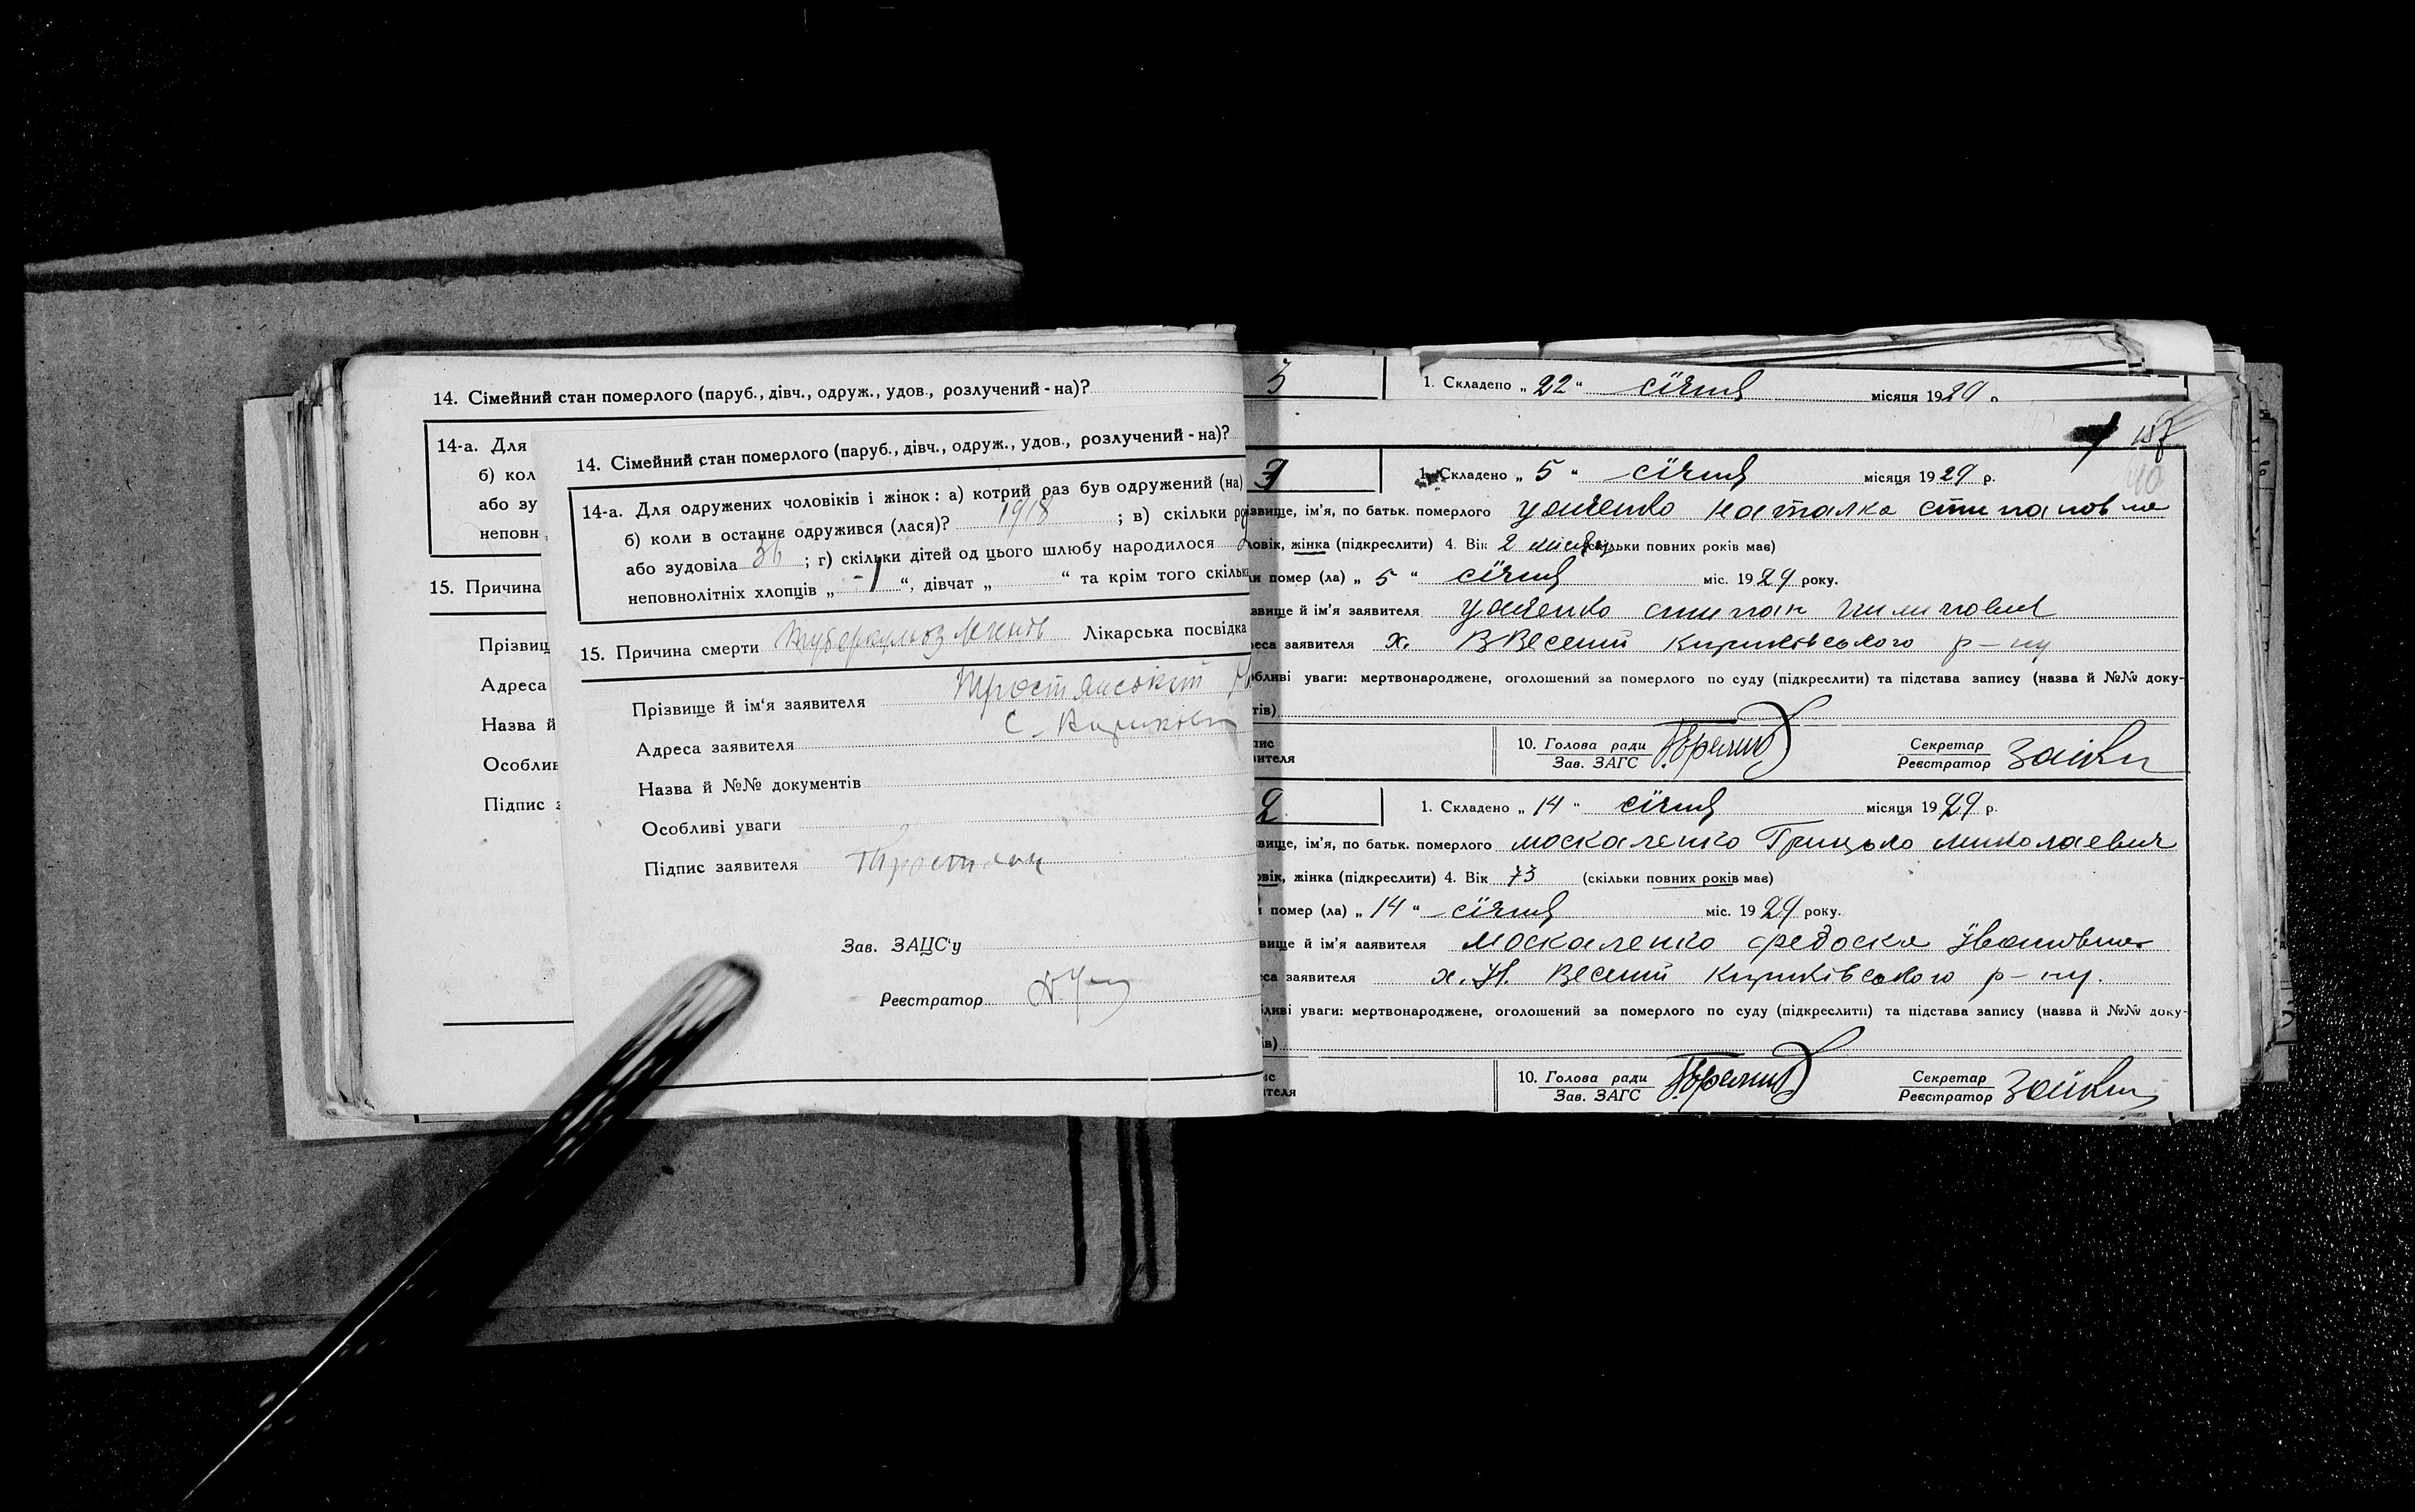 14. Сімейний стан померлого (паруб., дівч., одруж., удов., розлучений - на)?
14-а. Для
б) кол
або зу
неповн
15. Причина
Прізвищ
Адреса
Назва й
Особлив
Підпис з
14. Сімейний стан померлого (паруб., дівч., одруж., удов., розлучений - на)?
14-а. Для одружених чоловіків і жінок: а) котрий раз був одружений (на)
б) коли в останнє одружився (лася)? 1918 ; в) скільки ро
або зудовіла 36 ; г) скільки дітей од цього шлюбу народилося
неповнолітніх хлопців „ -1 “, дівчат „ “ та крім того скільки
15. Причина смерти туберкульоз легенів Лікарська посвідка
Прізвище й ім‘я заявителя Тростянський
Адреса заявителя с.
Назва й №№ документів
Особливі уваги
Підпис заявителя
Зав. ЗАЦС‘у
Реєстратор
3 1. Складено „ 22 “ січня місяця 1929 р
187
40
1. Складено „ 5 “ січня місяця 1929 р.
звище, ім‘я, по батьк. померлого Наталка Стипановна
ловік, жінка (підкреслити) 4. Вік 2 місяці (скільки повних років має)
и помер (ла) „ 5 “ січня міс. 1929 року.
звище й ім‘я заявителя Стипан
еса заявителя х. ВВесели Кириківського р-ну
обливі уваги: мертвонароджене, оголошений за померлого по суду (підкреслити) та підстава запису (назва й №№ доку-
тів)
пис
вителя
10. Голова ради
Зав. ЗАГС
Секретар
Реєстратор
2 1. Складено „ 14 “ січня місяця 1929 р.
вище, ім‘я, по батьк. померлого Москаленко Грицько Миколаевич
овік, жінка (підкреслити) 4. Вік 73 (скільки повних років має)
помер (ла) „ 14 “ січня міс. 1929 року.
вище й ім‘я заявителя Москаленко Федоска Івановна
са заявителя х. Н. Весели Кириківського р-ну.
ливі уваги: мертвонароджене, оголошений за померлого по суду (підкреслити) та підстава запису (назва й №№ доку-
ів)
ис
ителя
10. Голова ради
Зав. ЗАГС
Секретар
Реєстратор